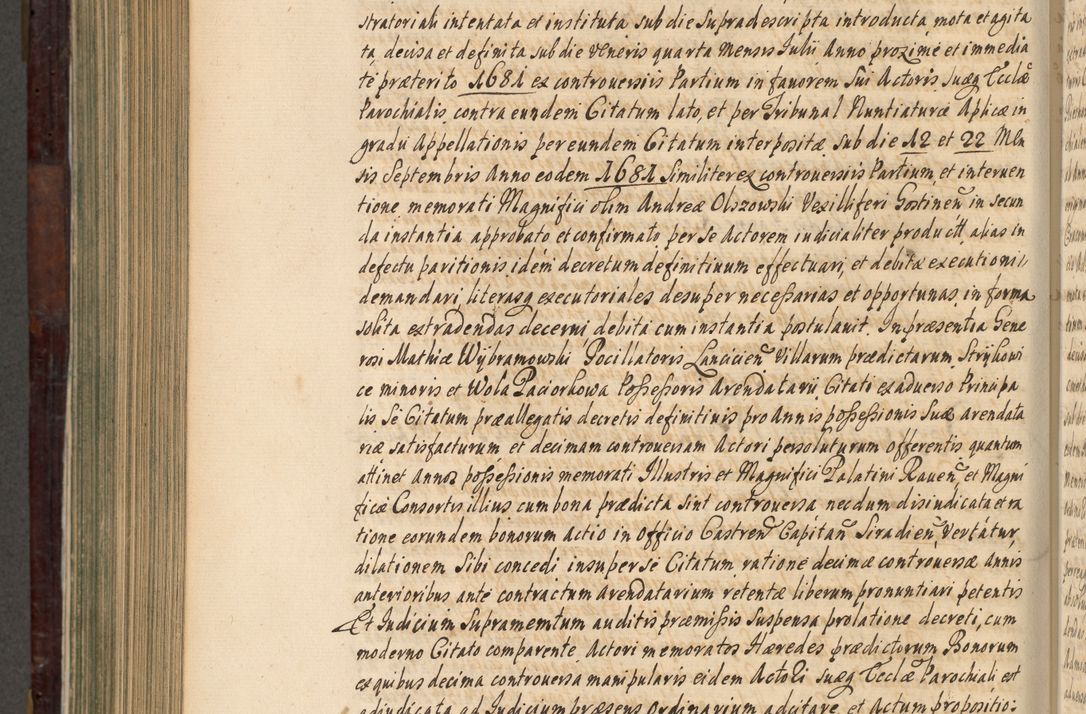 stratoriali intentata et instituta sub die supradescripta introducta mota et agita
ta, decisa et definita sub die Veneris quarta Mensis Julii Anno proximé et immedia
té præterito 1681 ex controversiis Partium in favorem Sui Actoris Suæq Eccłæ
Parochialis, contra eundem Citatum lato, et per Tribunal Nuntiaturæ Aplicæ in
gradu Appellationis per eundem Citatum interpositæ sub die 12 et 22 Men
sis Septembris Anno eodem 1681 Similiter ex controversiis Partium, et interven
tione memorati Magnifici olim Andreæ Olszowski Vexilliferi Gostinen̄ in secun
da instantia approbato et confirmato per se Actorem iudicialiter product, alias in
defectu paritionis idem decretum definitivum effectuari, et debitæ executioni
demandari, literasq executoriales desuper necessarias et opportunas in forma
solita extradendas decerni debita cum instantia postulavit. In præsentia Gene
rosi Mathiæ Wybramowski Pocillatoris Lancicien̄ Villarum prædictarum Strykowi
ce minoris et Wola Paciorkowa Possessoris Arendatarii Citati ex adverso Principa
lis. Se Citatum præallegatis decretis definitivis pro Annis possessionis Suæ arendata
riæ satisfacturum et decimam controversam Actori persoluturum offerentis quantum
attinet Annos possessionis memorati Illustris et Magnifici Palatini Raven̄, et Magni
ficæ Consortis illius cum bona prædicta sint controversa necdum disiudicata et ra
tione eorundem bonorum actio in Officio Castren̄ Capitan̄ Siradien̄ Vertatur,
dilationem Sibi concedi insuper se Citatum ratione decimæ controversæ annis
anterioribus anté contractum arendatarium retentæ liberum pronuntiari petentis
Et Judicium Supramemtum auditis præmissis Suspensa prolatione decreti, cum
moderno Citato comparente, Actori memoratos Hæredes prædictorum Bonorum
ex quibus decima controversa manipularis eidem Actori suæq Eccłæ Parochiali est
adiudicata ad Judicium præsens Ordinarium adcitare, et Actum propositio: